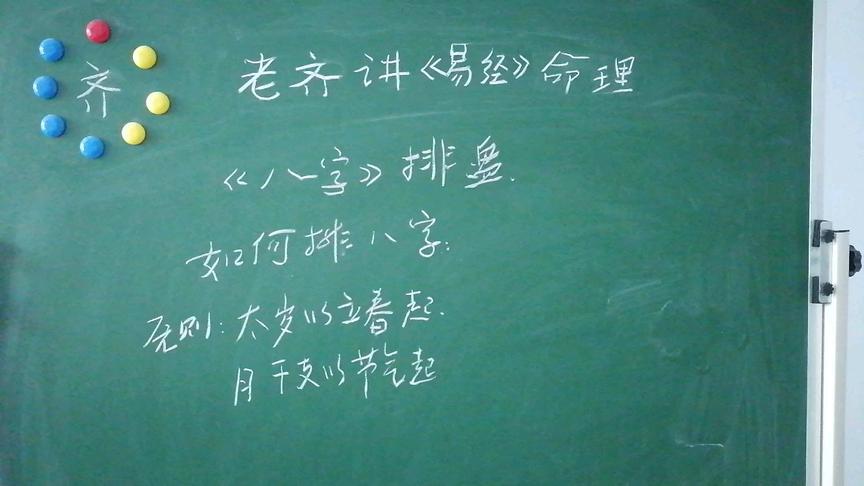 齐
老齐讲《易经》命理
《八字》排盘.
如何排八字:
原则:太岁以立春起.
月干支以节气起